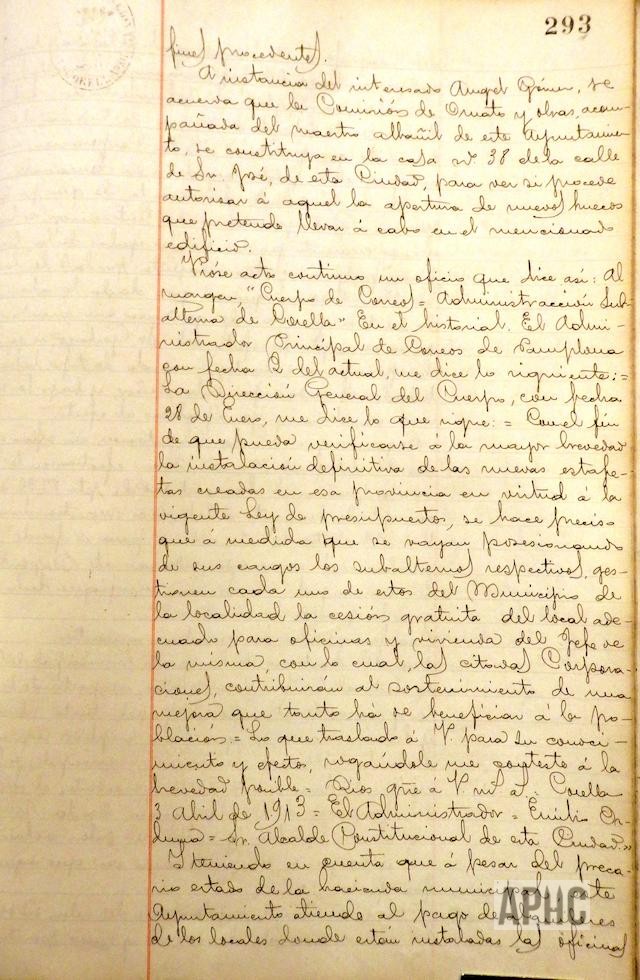 293
fines procedentes.
A instancia del interesado Angel Gómez, se
acuerda que la Comisión de Ornato y obras, acom-
pañada del maestro albañil de este Ayuntamien-
to, se constituya en la casa nº 38 de la calle
de Sn. José, de esta Ciudad, para ver si procede
autorisar á aquel la apertura de nuevos huecos
que pretende llevar á cabo en el mencionado
edificio.
Vióse acto continuo un oficio que dice así: Al
margen, "Cuerpo de Correos = Administracción Sub-
alterna de Corella" En el historial. El Admi-
nistrador Principal de Correos de Pamplona
con fecha 2 del actual, me dice lo siguiente: =
La Dirección General del Cuerpo, con fecha
28 de Enero, me dice lo que sigue: = Con el fin
de que pueda verificarse á la mayor brevedad
la instalación definitiva de las nuevas estafe-
tas creadas en esa provincia en virtud á la
vigente Ley de presupuestos, se hace preciso
que á medida que se vayan posesionando
de sus cargos los subalternos respectivos, ges-
tionen cada uno de estos del Municipio de
la localidad la cesión gratuita del local ade-
cuado para oficinas y vivienda del Jefe de
la misma, con lo cual, las citadas Corpora-
ciones, contribuirán al sostenimiento de una
mejora que tanto há de beneficiar á la po-
blación = Lo que traslado á V. para su conoci-
miento y efectos, rogándole me conteste á la
brevedad posible = Dios gue á V. m. a. = Corella
3 Abil de 1913 = El Administrador = Emilio
= Sr. Alcalde Constitucional de esta Ciudad."
Y teniendo en cuenta que á pesar del preca-
rio estado de la hacienda municipal, este
Ayuntamiento atiende al pago de alquileres
de los locales donde están instaladas las oficinas
APHC